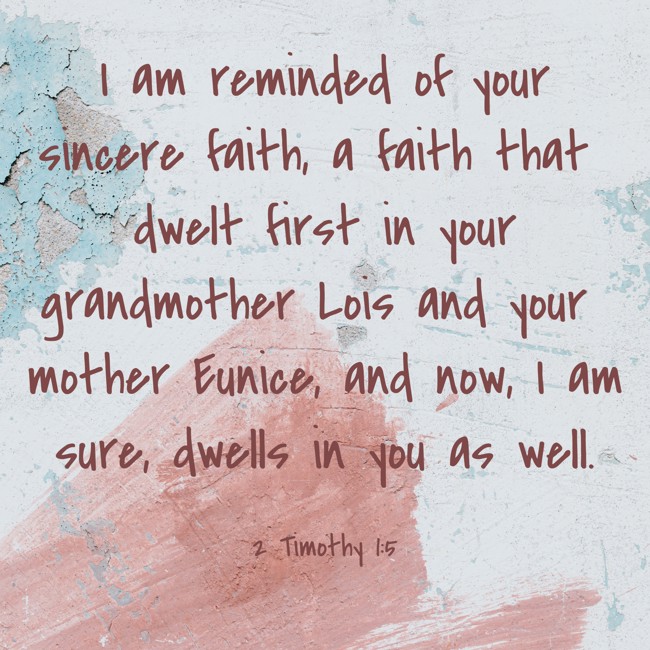 I am reminded of your
sincere faith, a faith that
dwelt first in your
grandmother Lois and your
mother Eunice, and now, I am
sure, dwells in you as well.
2 Timothy 1:5